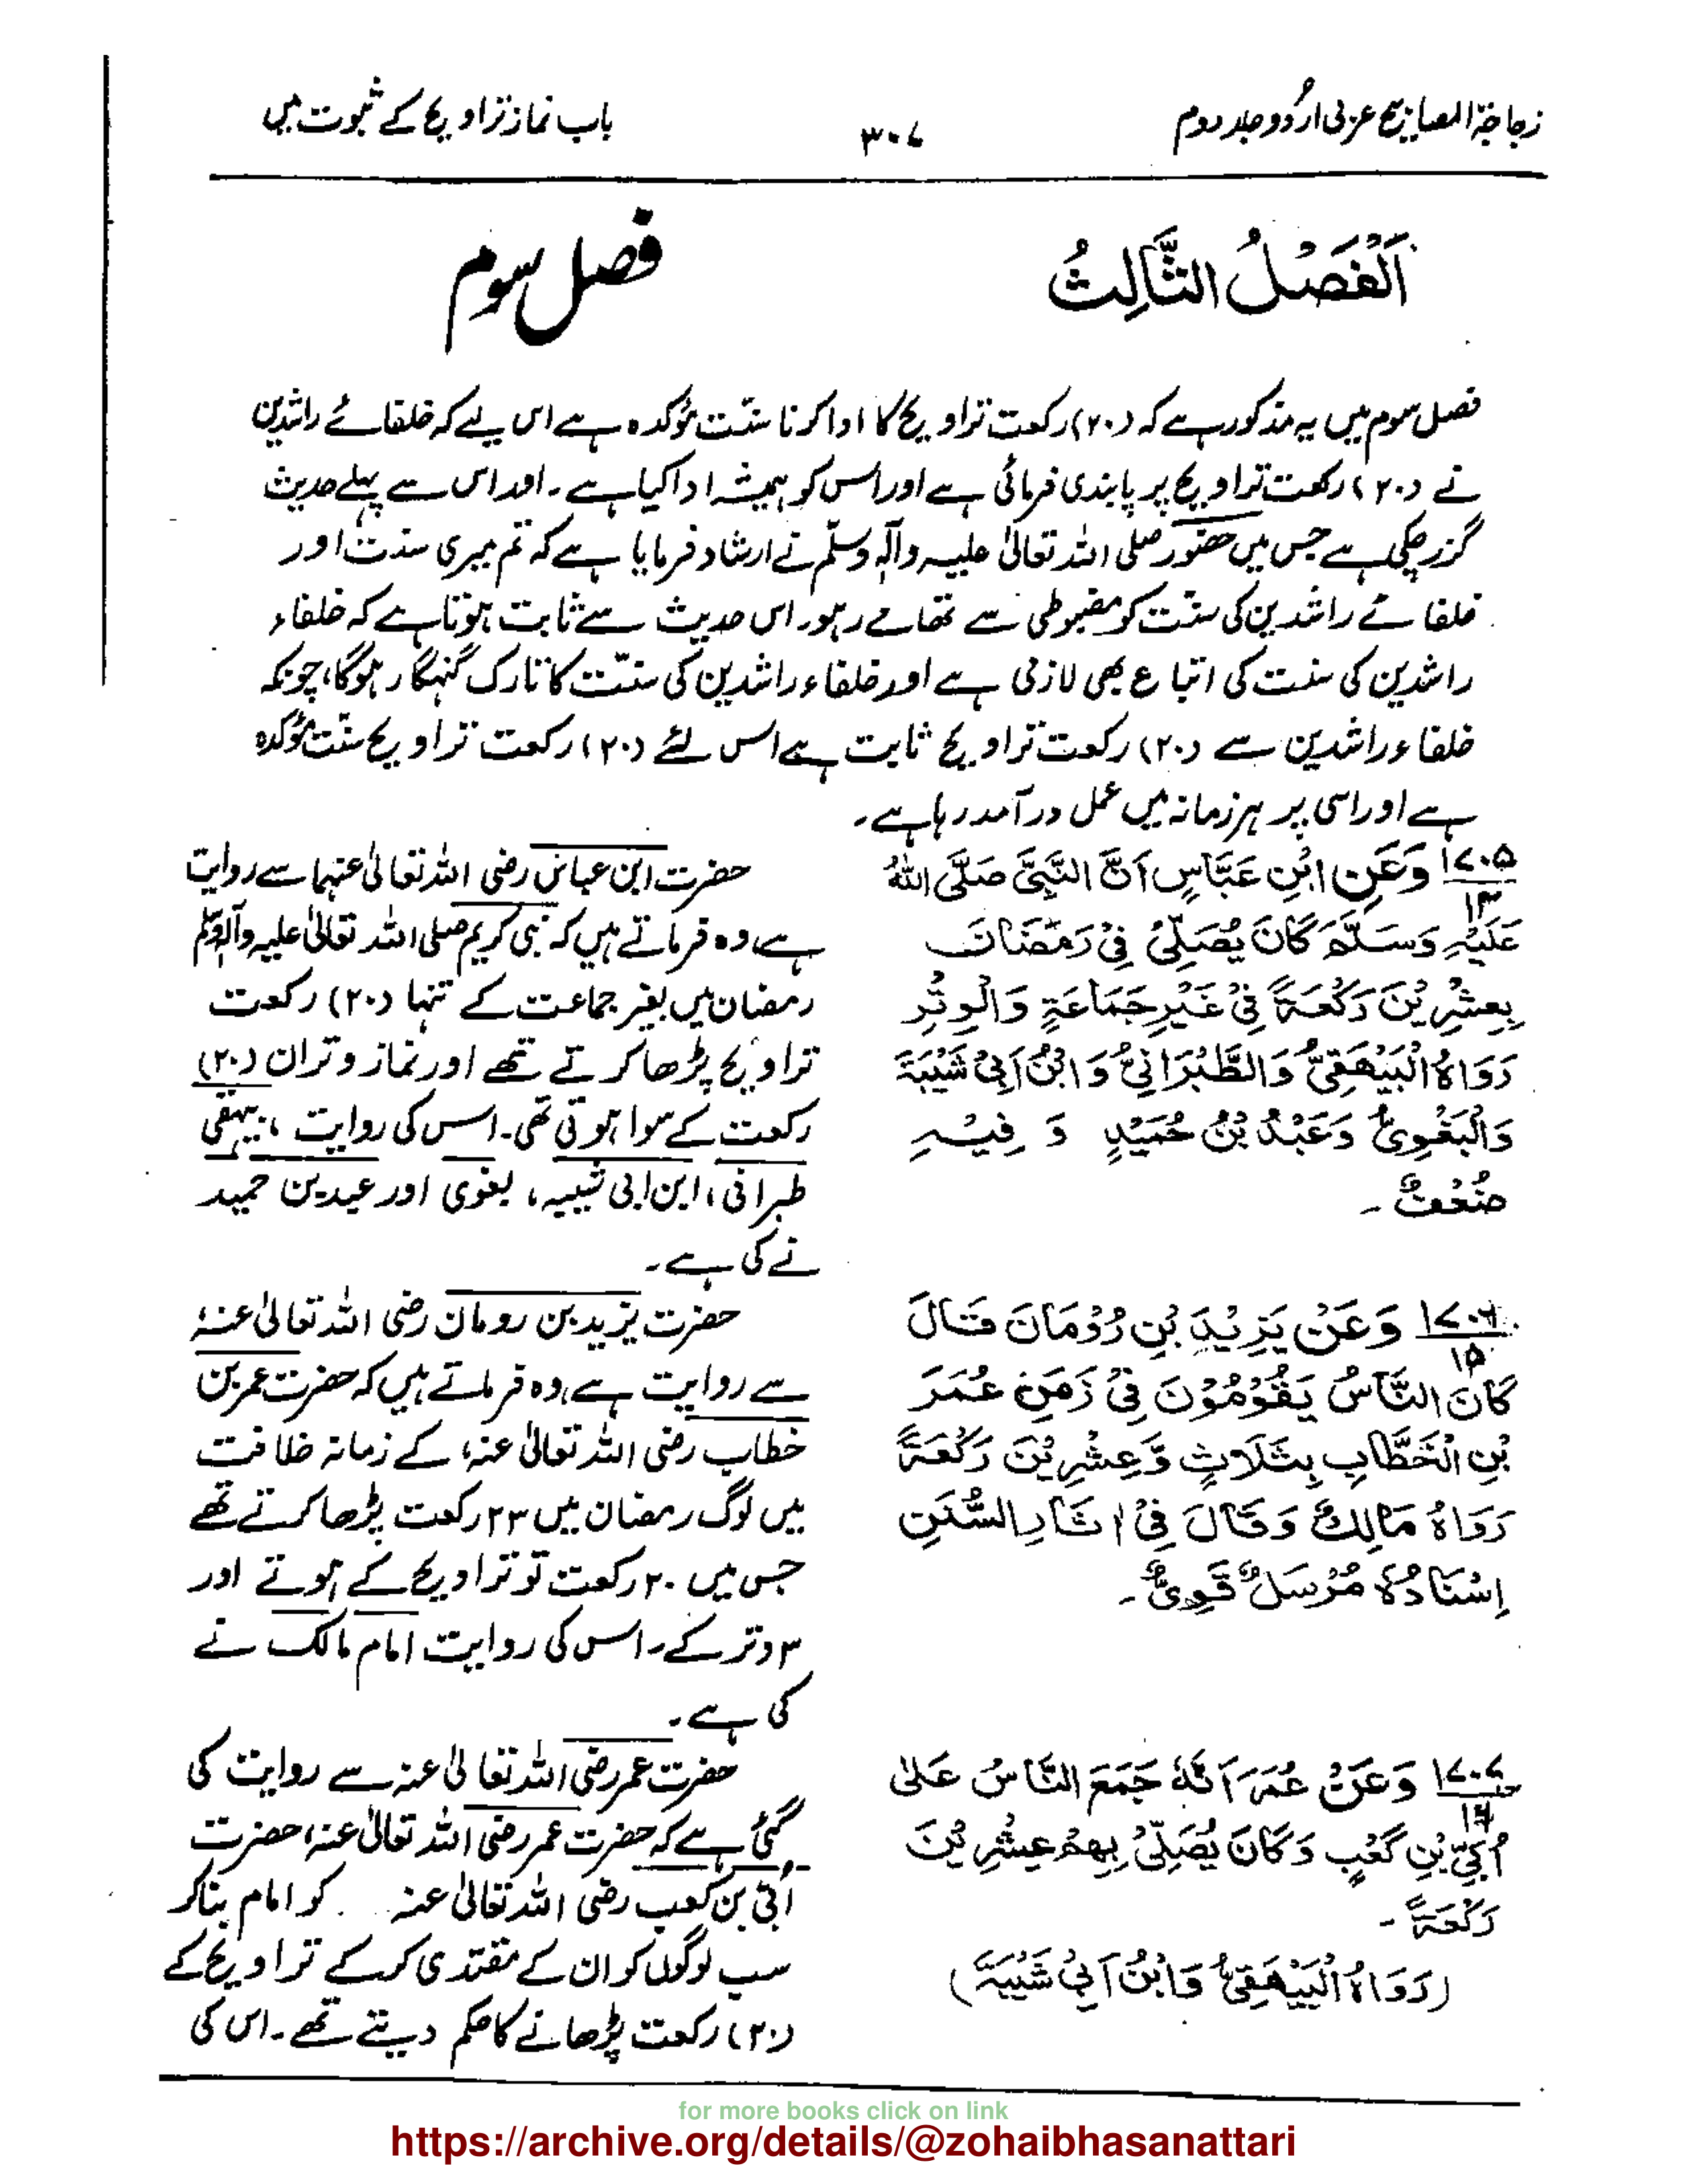 زجاجۃ المصابیح عربی اردو جلد دوم
۳۰۷
باب نماز تراویح کے ثبوت میں
اَلْفَصْلُ الثَّالِثُ
فصل سوم
فصل سوم میں یہ مذکور ہے کہ (۲۰) رکعت تراویح کا ادا کرنا سنّت مؤکدہ ہے اس لیے کہ خلفائے راشدین
نے (۲۰) رکعت تراویح پر پابندی فرمائی ہے اور اس کو ہمیشہ ادا کیا ہے۔ اور اس سے پہلے حدیث
گزر چکی ہے جس میں حضور صلی اللہ تعالیٰ علیہ وآلہٖ وسلّم نے ارشاد فرمایا ہے کہ تم میری سنت اور
خلفائے راشدین کی سنّت کو مضبوطی سے تھامے رہو۔ اس حدیث سے ثابت ہوتا ہے کہ خلفاء
راشدین کی سنت کی اتباع بھی لازمی ہے اور خلفاء راشدین کی سنّت کا تارک گنہگار ہوگا، چونکہ
خلفاء راشدین سے (۲۰) رکعت تراویح ثابت ہے اس لئے (۲۰) رکعت تراویح سنّت مؤکدہ
ہے اور اسی پر ہر زمانہ میں عمل درآمد رہا ہے۔
۱۷۰۵ وَعَنِ ابْنِ عَبَّاسٍ اَنَّ النَّبِیَّ صَلَّی اللّٰہُ
۱۴
عَلَیْہِ وَسَلَّمَ کَانَ یُصَلِّیْ فِیْ رَمَضَانَ
بِعِشْرِیْنَ رَکْعَۃً فِیْ غَیْرِ جَمَاعَۃٍ وَالْوِتْرِ
رَوَاہُ الْبَیْهَقِیُّ وَالطَّبْرَانِیُّ وَابْنُ اَبِیْ شَیْبَۃَ
وَالْبَغْوِیُّ وَعَبْدُ بْنُ حُمَیْدٍ وَ فِیْہِ
ضُعْفٌ ۔
حضرت ابن عباس رضی اللہ تعالیٰ عنہما سے روایت
ہے، وہ فرماتے ہیں کہ نبی کریم صلی اللہ تعالیٰ علیہ وآلہٖ وسلم
رمضان میں بغیر جماعت کے تنہا (۲۰) رکعت
تراویح پڑھا کرتے تھے اور نماز وتران (۲۰)
رکعت کے سوا ہوتی تھی۔ اس کی روایت ، بیہقی
طبرانی، ابن ابی شیبہ، بغوی اور عبد بن حمید
نے کی ہے۔
۱۷۰۶ وَعَنْ یَزِیْدَ بْنِ رُوْمَانَ قَالَ
۱۵
کَانَ النَّاسُ یَقُوْمُوْنَ فِیْ زَمَنِ عُمَرَ
بْنِ الْخَطَّابِ بِثَلَاثٍ وَّعِشْرِیْنَ رَکْعَۃً
رَوَاہُ مَالِکٌ وَقَالَ فِیْ اٰثَارِ السُّنَنِ
اِسْنَادُہٗ مُرْسَلٌ قَوِیٌّ ۔
حضرت یزید بن رومان رضی اللہ تعالیٰ عنہٗ
سے روایت ہے، وہ فرماتے ہیں کہ حضرت عمر بن
خطاب رضی اللہ تعالیٰ عنہٗ کے زمانہ خلافت
میں لوگ رمضان میں ۲۳ رکعت پڑھا کرتے تھے
جس میں ۲۰ رکعت تو تراویح کے ہوتے اور
۳ وتر کے۔ اس کی روایت امام مالک نے
کی ہے۔
۱۷۰۷ وَعَنْ عُمَرَ اَنَّہٗ جَمَعَ النَّاسُ عَلٰی
۱۶
اُبَیِّ بْنِ کَعْبٍ وَکَانَ یُصَلِّیْ بِهِمْ عِشْرِیْنَ
رَکْعَۃً ۔
(رَوَاہُ الْبَیْهَقِیُّ وَابْنُ اَبِیْ شَیْبَۃَ)
حضرت عمر رضی اللہ تعالیٰ عنہ سے روایت کی
گئی ہے کہ حضرت عمر رضی اللہ تعالیٰ عنہٗ، حضرت
اُبَی بن کعب رضی اللہ تعالیٰ عنہ کو امام بنا کر
سب لوگوں کو ان کے مقتدی کرکے تراویح کے
(۲۰) رکعت پڑھانے کا حکم دیتے تھے۔ اس کی
for more books click on link
https://archive.org/details/@zohaibhasanattari